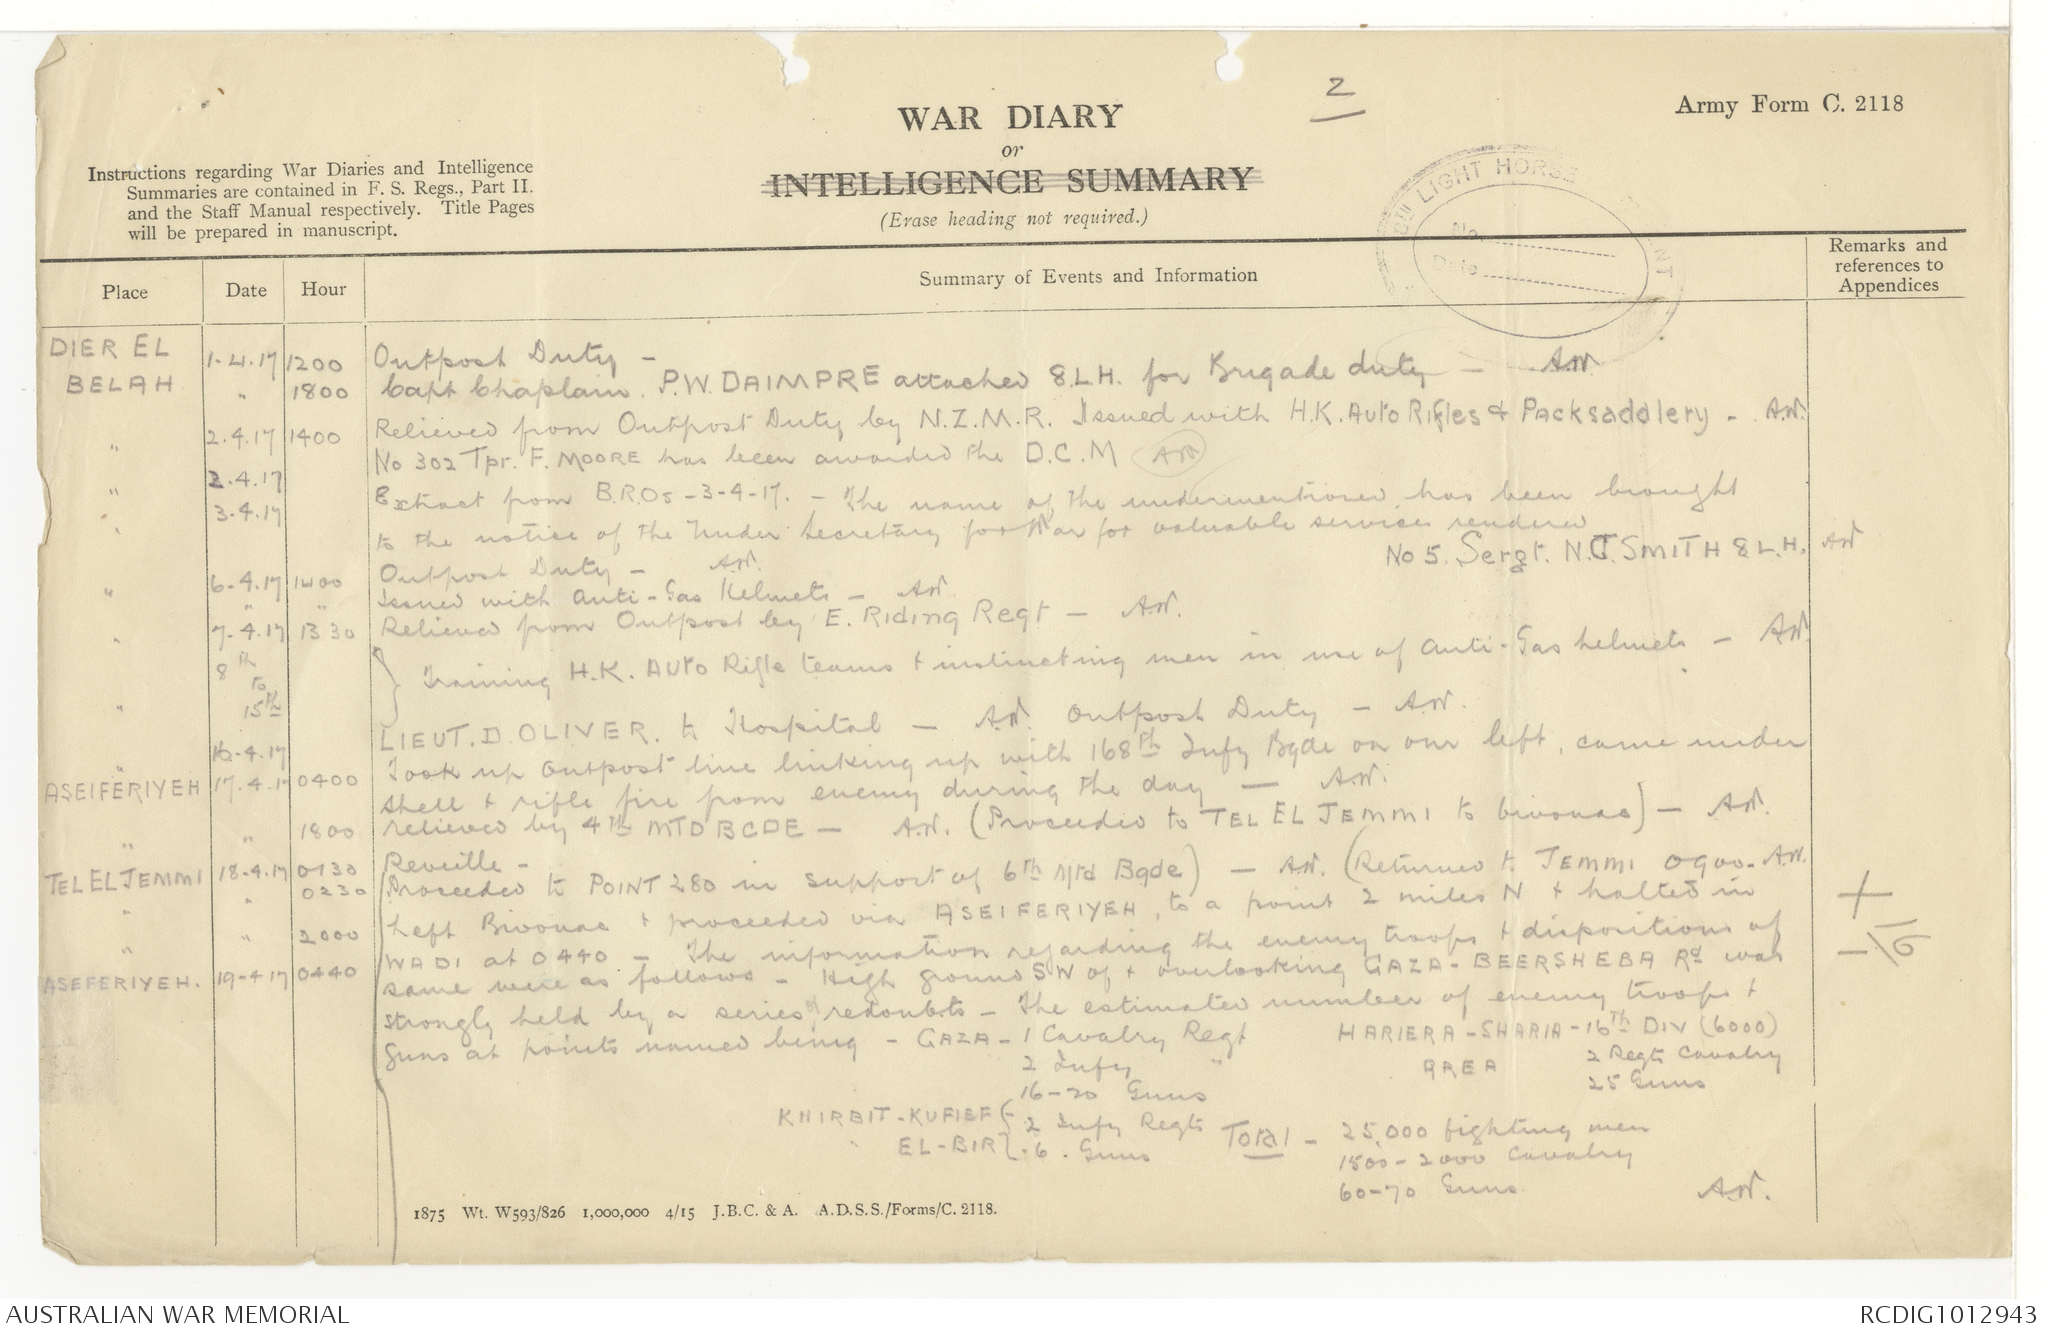 2
WAR DIARY
or
INTELLIGENCE SUMMARY
(Erase heading not required.)
Army Form C. 2118
Instructions regarding War Diaries and Intelligence
Summaries are contained in F. S. Regs., Part II.
and the Staff Manual respectively. Title Pages
will be prepared in manuscript.
8TH LIGHT HORSE
No.
Date
Place Date Hour Summary of Events and Information Remarks and references to Appendices
DIER EL 1-4.17 1200 Outpost Duty -
BELAH " 1800 Capt Chaplain. P.W. DAIMPRE attached 8.L.H. for Brigade duty - A.W.
" 2.4.17 1400 Relieved from Outpost Duty by N.Z.M.R. Issued with H.K. Auto Rifles & Packsaddlery - A.W.
" 2.4.17 No 302 Tpr. F. MOORE has been awarded the D.C.M A.W.
" 3.4.17 Extract from B.R.Os - 3-4-17. - The name of the undermentioned has been brought
to the notice of the Under Secretary for War for valuable services rendered
No 5. Sergt. N.J. SMITH 8 L.H. A.W.
" 6-4.17 1400 Outpost Duty - A.W.
" " Issued with Anti-Gas Helmets - A.W.
" 7-4.17 1330 Relieved from Outpost by E. Riding Regt - A.W.
8th to 15th } Training H.K. Auto Rifle teams & instructing men in use of Anti-Gas helmets - A.W.
" 16-4.17 LIEUT. D. OLIVER. to Hospital - A.W. Outpost Duty - A.W.
ASEIFERIYEH 17.4.17 0400 Took up outpost line linking up with 168th Infy Bgde on our left, came under
shell & rifle fire from enemy during the day - A.W.
" " 1800 relieved by 4TH MTD BGDE - A.W. (Proceeded to TEL EL JEMMI to bivouac) - A.W.
TEL EL JEMMI 18-4.17 0130 Reveille -
" " 0230 (Proceeded to POINT 280 in support of 6th Mtd Bgde) - A.W. (Returned to JEMMI 0900 - A.W.
" " 2000 Left Bivouac & proceeded via ASEIFERIYEH, to a point 2 miles N & halted in
ASEFERIYEH. 19-4.17 0440 WADI at 0440 - The information regarding the enemy troops & dispositions of
same were as follows - High ground SW of & overlooking GAZA-BEERSHEBA Rd was
strongly held by a series of redoubts - The estimated number of enemy troops &
guns at points named being - GAZA - 1 Cavalry Regt HARIERA-SHARIA - 16TH DIV (6000)
2 Infy " AREA 2 Regts Cavalry
16-20 Guns 25 Guns
KHIRBIT-KUFIEF 2 Infy Regts Total - 25,000 fighting men
" EL-BIR 6. Guns 1500-2000 Cavalry
60-70 Guns A.W.
1875 Wt. W593/826 1,000,000 4/15 J.B.C. & A. A.D.S.S./Forms/C. 2118.
AUSTRALIAN WAR MEMORIAL RCDIG1012943